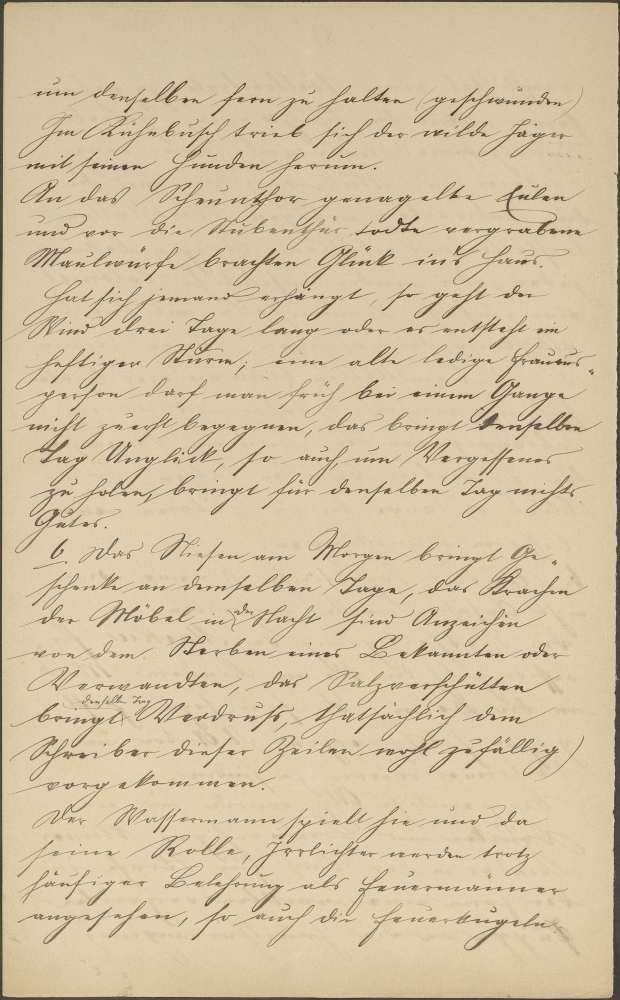 um denselben fern zu halten (geschwunden)
Im Kühnbusch trieb sich der wilde Jäger
mit seinen Hunden herum.
An das Scheunthor genagelte Eulen
und vor die Stubenthür todte vergrabene
Maulwürfe brachten Glück in's Haus.
Hat sich jemand erhängt, so geht der
Wind drei Tage lang oder es entsteht ein
heftiger Sturm; eine alte ledige Frauens-
person darf man früh bei einem Gange
nicht zuerst begegnen, das bringt denselben
Tag Unglück, so auch, um Vergessenes
zu holen, bringt für denselben Tag nichts
Gutes.
6. Das Niesen am Morgen bringt Ge-
schenke an demselben Tage, das Krachen
der Möbel in der Nacht sind Anzeichen
von dem Sterben eines Bekannten oder
Verwandten, das Salzverschütten
denselb. Tag
bringt Verdruss, thatsächlich dem
Schreiber dieser Zeilen wohl zufällig)
vorgekommen.
Der Wassermann spielt hie und da
seine Rolle, Irrlichter werden trotz
häufiger Belehrung als Feuermänner
angesehen, so auch die Feuerkugeln